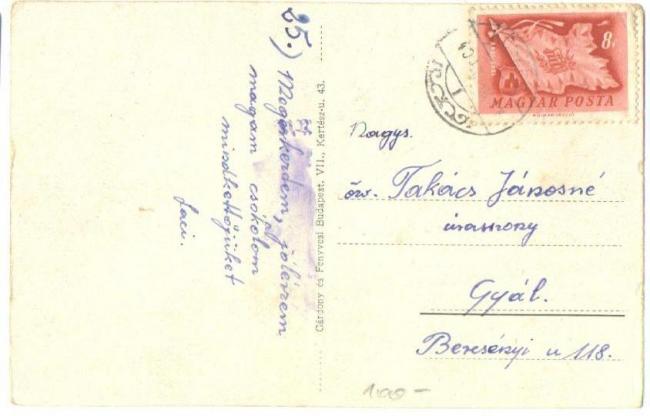 25.)
Megérkeztem, jól érzem
magam csókolom
mindkettőjüket
Laci.
Gárdony és Fenyvesi Budapest, VII., Kertész-u. 43.
8f
MAGYAR POSTA
Nagys.
özv. Takács Jánosné
úrasszony
Gyál.
Bercsényi u 118.
100-